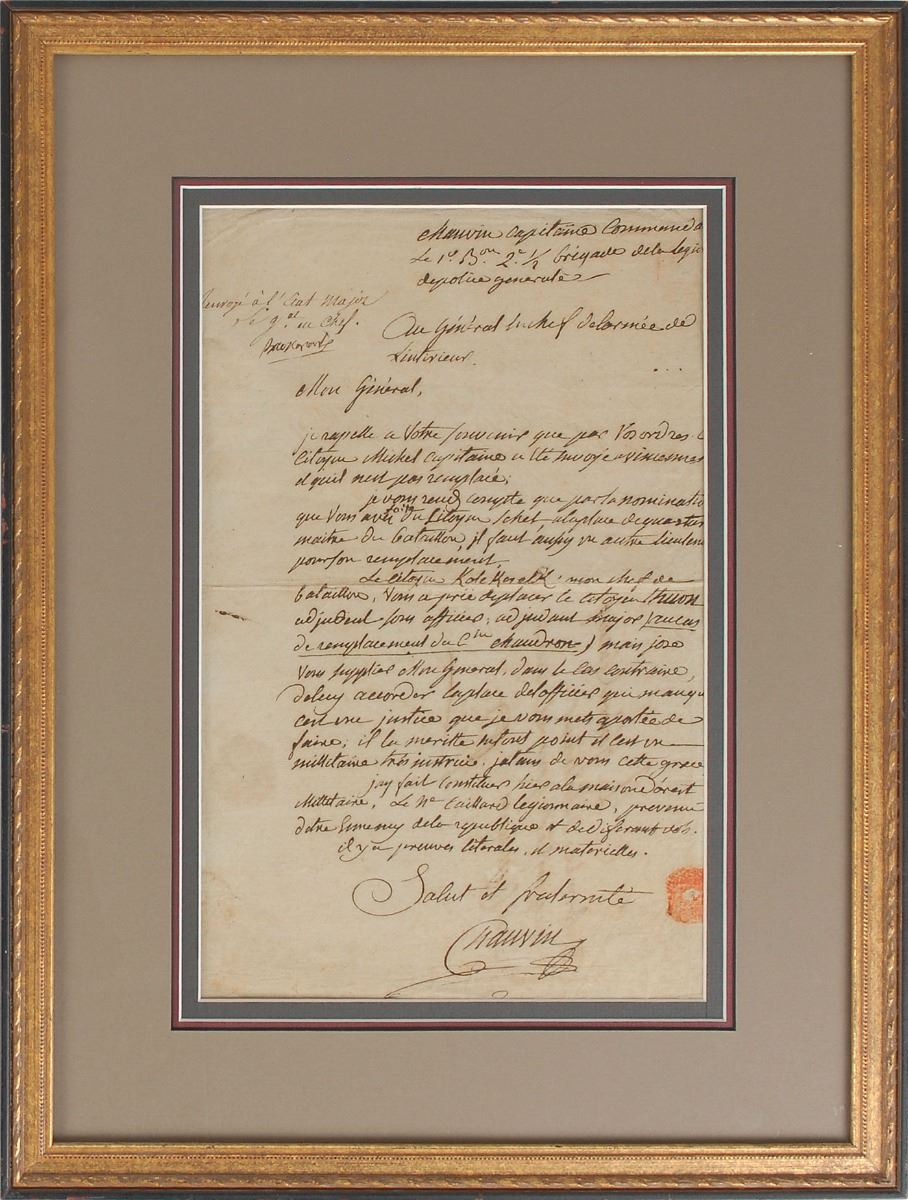 Chauvin Capitaine Command
Le 1er Bon 2e 1/2 brigade de la legi
de police generale
Renvoyé à l'Etat Major
Le gal en chef.
Au Général en chef de larmée de
Linterieur.
Mon Général,
je rapelle a Votre souvenir que par Vos ordres
Citoyen Michel Capitaine a été envoyé a vincennes
et qu'il nest pas remplacé;
je vous rend compte que par la nominatio
que Vous avez du Citoyen a la place de quartier
maitre du bataillon, il faut aussy un autre lieuten
pour son remplacement,
Le Citoyen mon chef de
bataillon, Vous a prié de placer le citoyen
adjudent sous officier, adjudant major
de remplacement du Cen Chaudron) mais jose
Vous supplier Mon General, dans le cas contraire,
de luy accorder la place dofficier qui manque
cest une justice que je vous mets a portée de
faire, il la meritte il est un
millitaire très instruit. jatans de vous cette grace
jay fait constituer hier a la maison d'arest
Millitaire, Le Né Caillard legionnaire, prevenu
detre Ennemy de la republique et de diferants vols.
il y a preuves literales, et materielles.
Salut et fraternité
Chauvin